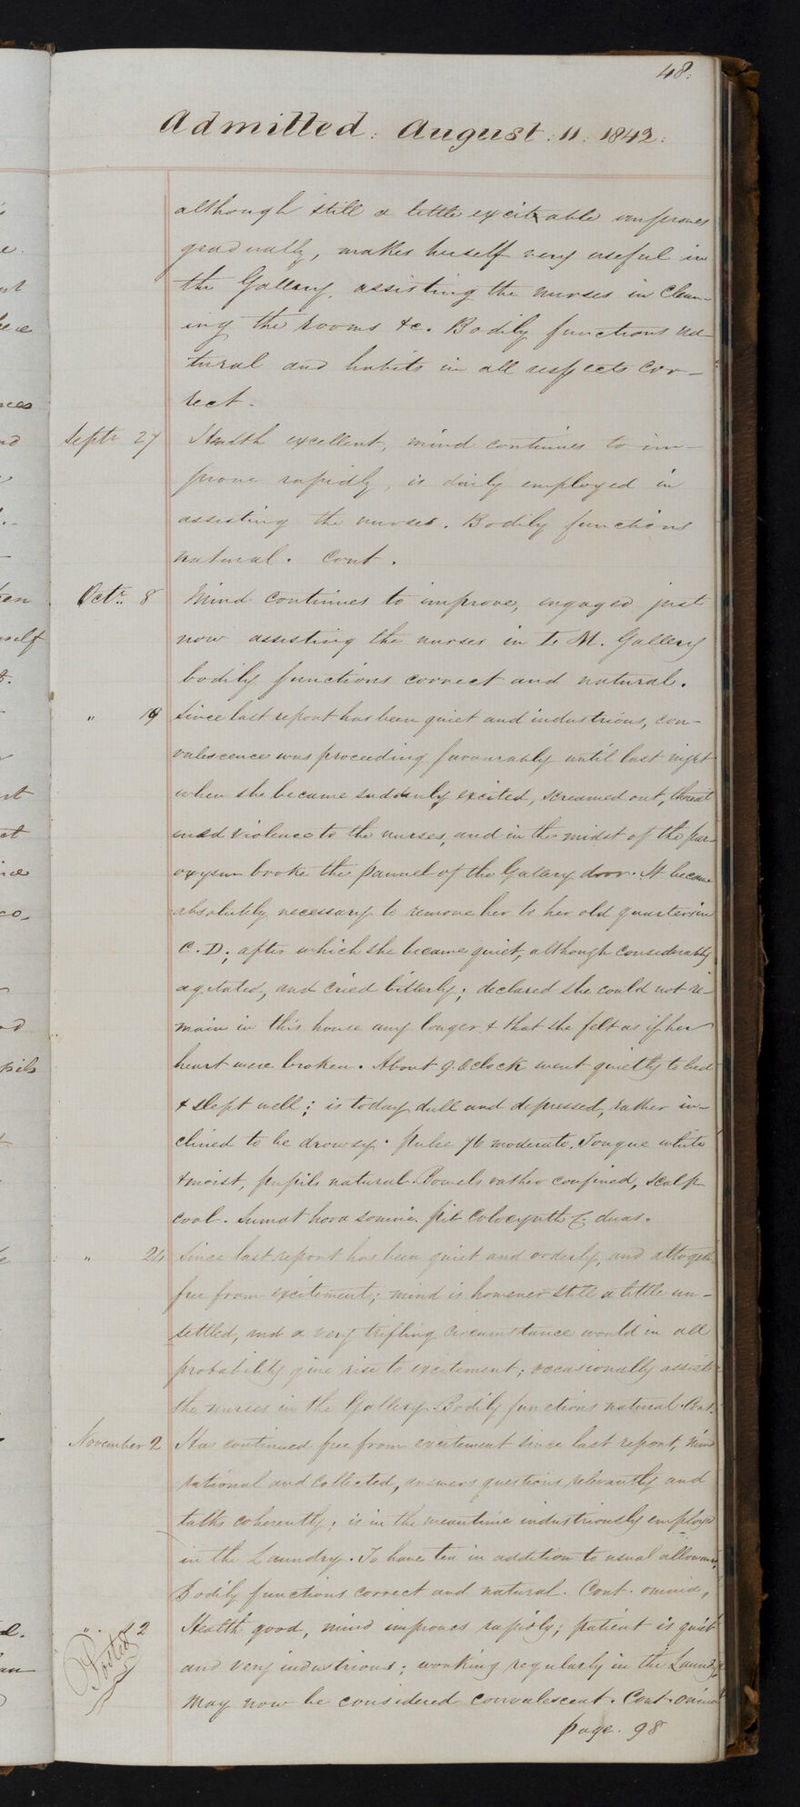 48.
Admitted: August: 11: 1842:
although still a little excitable improves
gradually, makes herself very useful in
the Gallery, assisting the nurses in clean-
ing the rooms &c. Bodily functions na-
tural and habits in all respects cor-
rect.
Septr 27 Health excellent, mind continues to im-
prove rapidly, is daily employed in
assisting the nurses. Bodily functions
natural. Cont.
Octr. 8 Mind continues to improve, engaged just
now assisting the nurses in the M. Gallery
bodily functions correct and natural.
" 19 Since last report has been quiet and industrious, con-
valescence was proceeding favourably until last night
when she became suddenly excited, screamed out, threat
ened violence to the nurses, and in the midst of the par-
oxysm broke the pannel of the Gallery door. It became
absolutely necessary to remove her to her old quarters in
C. D; after which she became quiet, although considerably
agitated, and cried bitterly; declared she could not re-
main in this house any longer & that she felt as if her
heart were broken. About 9 Oclock went quietly to bed
& slept well; is today dull and depressed, rather in-
clined to be drowsy. Pulse 76 moderate. Tongue white
& moist, pupils natural. Bowels rather confined, scalp
cool. Sumat hora somni. pil Colocynth C. duas.
" 24 Since last report has been quiet and orderly, and altogeth
free from excitement; mind is however still a little un-
settled, and a very trifling circumstance would in all
probability give rise to excitement; occasionally assists
the nurses in the Gallery. Bodily functions natural. Cont.
November 2 Has continued free from excitement since last report, mind
rational and collected, answers questions relevantly and
talks coherently; is in the meantime industriously employed
in the Laundry. To have tea in addition to usual allowance,
Bodily functions correct and natural. Cont. omnia,
" 12 Health good, mind improves rapidly; patient is quiet
Posted
and very industrious; working regularly in the Laundry
May now be considered convalescent. Cont. omnia
page. 98